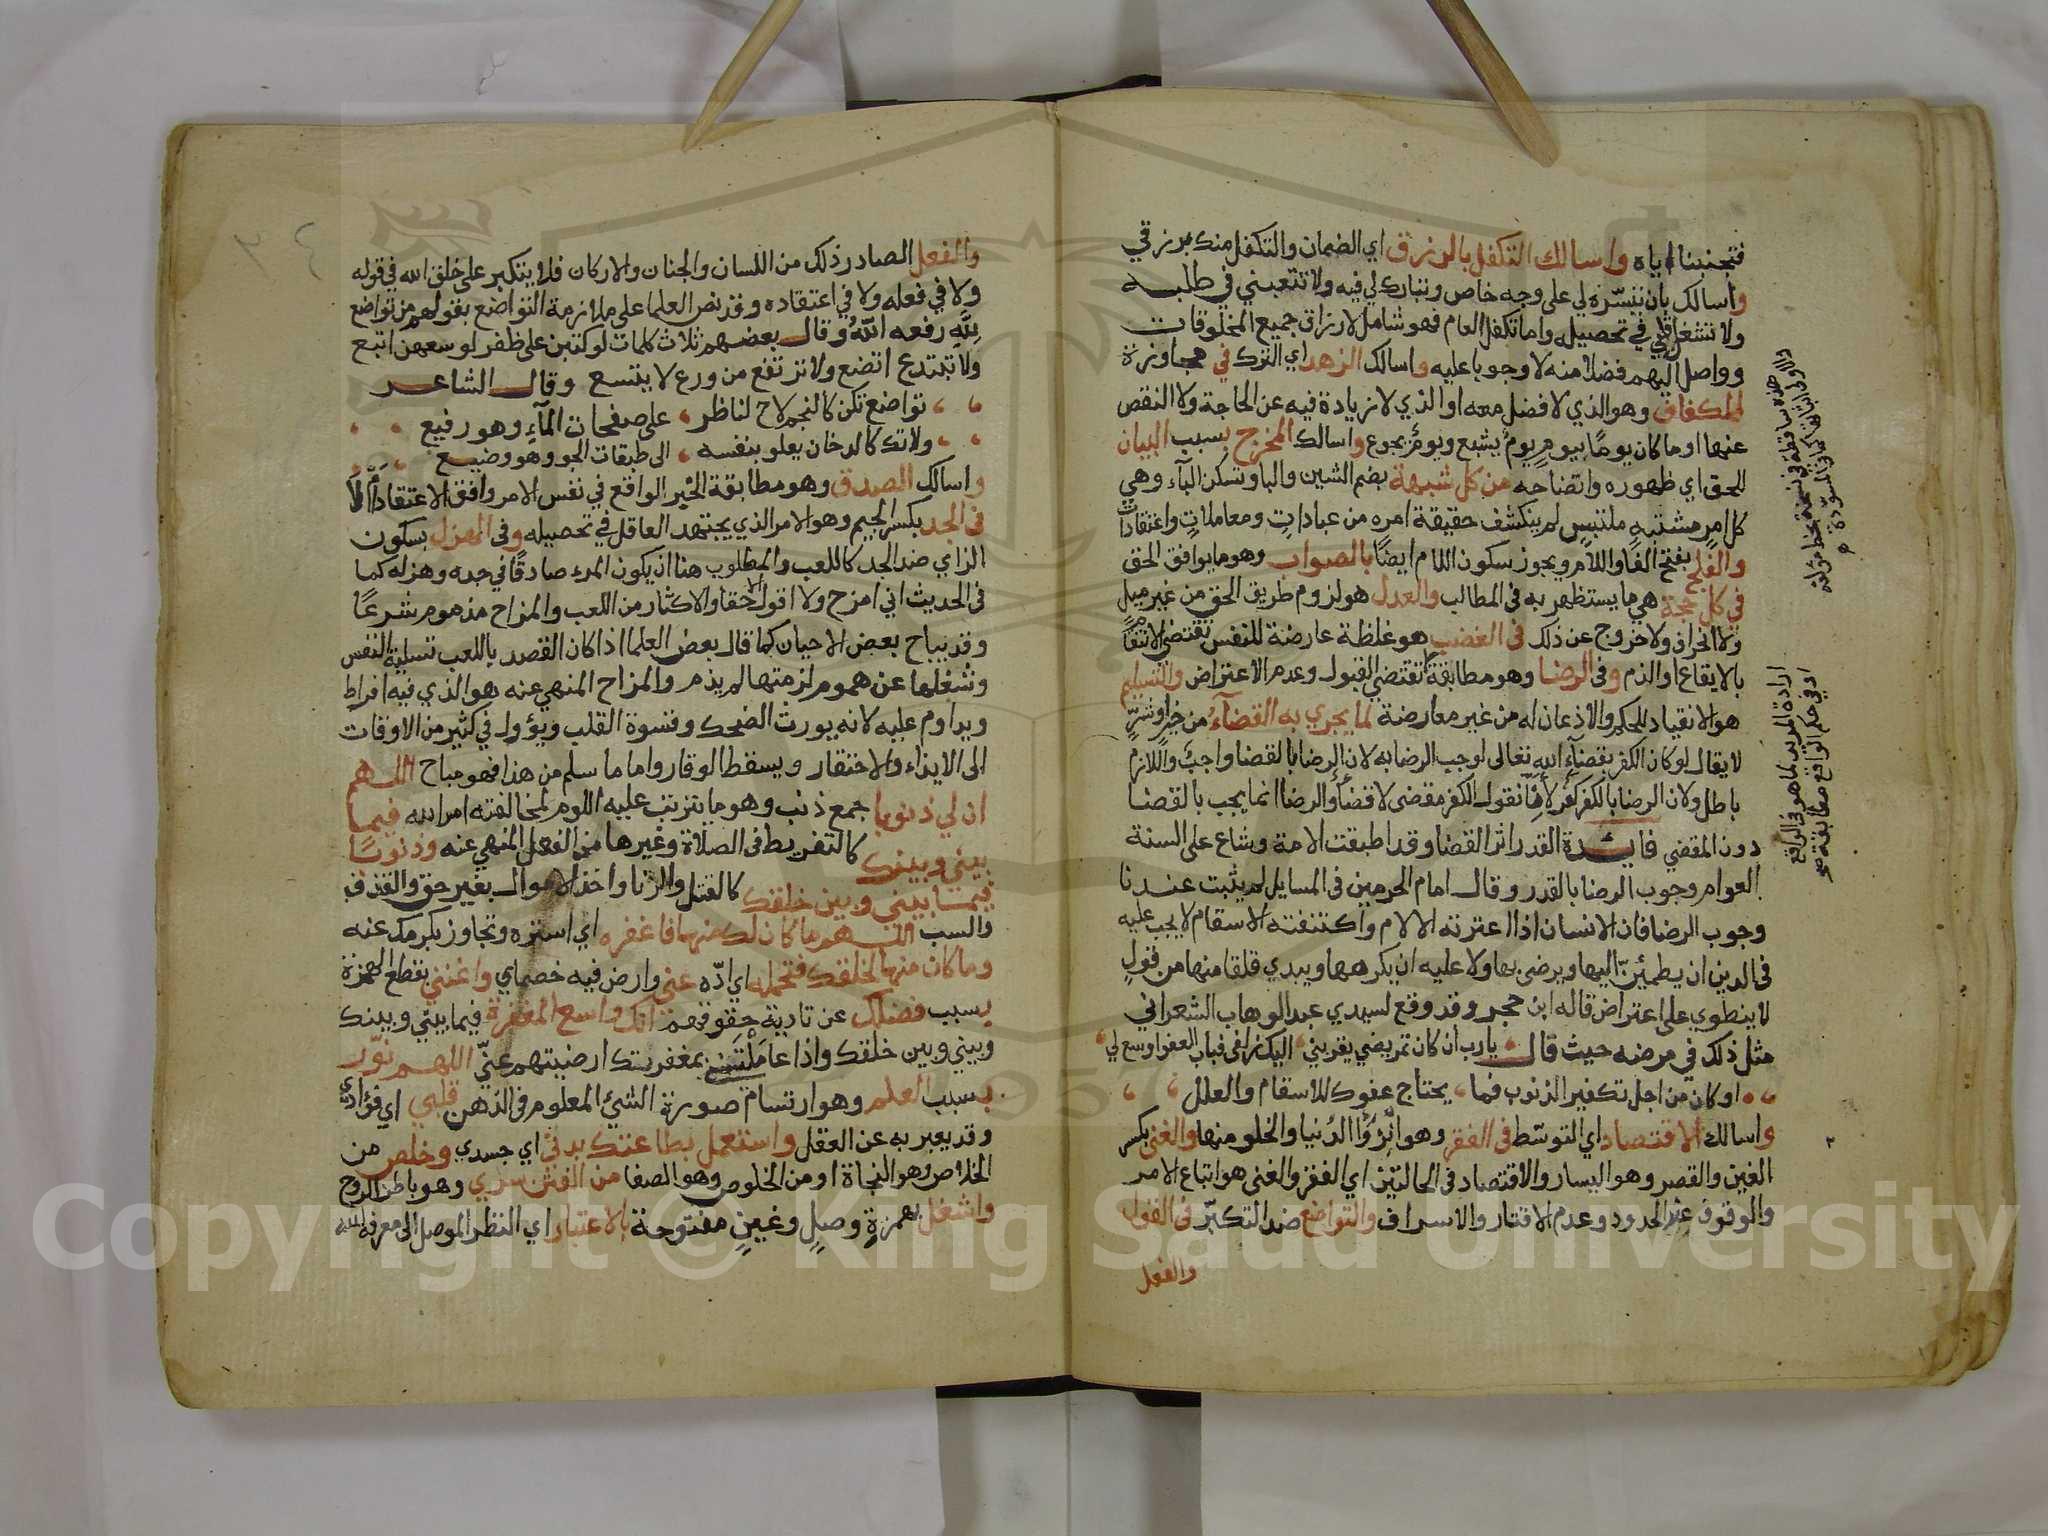 فتجنبنا اياه واسالك التكفل بالرزق اي الضمان والتكفل منك برزقي
واسالك بان تيسره لي على وجه خاص وتبارك لي فيه ولا تتعبني في طلبه
ولا تشغل قلبي في تحصيله واما تكفل العام فهو شامل لارزاق جميع المخلوقات
وواصل اليهم فضلا منه لا وجوبا عليه واسالك الزهد اي الترك في مجاوزة
الكفاف وهو الذي لا فضل معه او الذي لا زيادة فيه عن الحاجة ولا النقص
عنها او ما كان يوما بيوم يوم يشبع ويوم يجوع واسالك المخرج بسبب البيان
للحق اي ظهوره واتضاحه من كل شبهة بضم الشين والبا وتسكن الباء وهي
كل امر مشتبه ملتبس لم ينكشف حقيقة امره من عبادات ومعاملات واعتقادات
والفلج بفتح الفا واللام ويجوز سكون اللام ايضا بالصواب وهو ما يوافق الحق
في كل حجة هي ما يستظهر به في المطالب والعدل هو لزوم طريق الحق من غير ميل
ولا انحراف ولا خروج عن ذلك في الغضب هو غلظة عارضة للنفس تقتضي الانتقام
بالايقاع او الذم وفي الرضا وهو مطابقة تقتضي القبول وعدم الاعتراض والتسليم
هو الانقياد للحكم والاذعان له من غير معارضة لما يجري به القضاء من خير او شر
لا يقال لو كان الكفر بقضاء الله تعالى لوجب الرضا به لان الرضا بالقضا واجب واللازم
باطل ولان الرضا بالكفر كفر لانا نقول الكفر مقضى لا قضا والرضا انما يجب بالقضا
دون المقضي فايدة القدر اثر القضا وقد اطبقت الامة وشاع على السنة
العوام وجوب الرضا بالقدر وقال امام الحرمين في المسايل لم يثبت عندنا
وجوب الرضا فان الانسان اذا اعترته الالام واكتنفته الاسقام لا يجب عليه
في الدين ان يطمئن اليها ويرضى بها ولا عليه ان يكرهها ويبدي قلقا منها من قول
لا ينطوي على اعتراض قاله ابن حجر وقد وقع لسيدي عبد الوهاب الشعراني
مثل ذلك في مرضه حيث قال يارب ان كان تمريضي يقربني اليك زلفى فباب العفو اوسع لي
او كان من اجل تكفير الذنوب فما يحتاج عفوك للاسقام والعلل
واسالك الاقتصاد اي التوسط في الفقر وهو انزواء الدنيا والخلو منها والغنى بكسر
الغين والقصر وهو اليسار والاقتصاد في الحالتين اي الفقر والغنى هو اتباع الامر
والوقوف عند الحدود وعدم الاقتار والاسراف والتواضع ضد التكبر في القول
والفعل
والفعل الصادر ذلك من اللسان والجنان والاركان فلا يتكبر على خلق الله في قوله
ولا في فعله ولا في اعتقاده وقد نص العلما على ملازمة التواضع بقولهم من تواضع
لله رفعه الله وقال بعضهم ثلاث كلمات لو كتبن على ظفر لوسعهن اتبع
ولا تبتدع اتضع ولا ترتفع من ورع لا يتسع وقال الشاعر
تواضع تكن كالنجم لاح لناظر على صفحات الماء وهو رفيع
ولا تك كالدخان يعلو بنفسه الى طبقات الجو وهو وضيع
واسالك الصدق وهو مطابقة الخبر الواقع في نفس الامر وافق الاعتقاد ام لا
في الجد بكسر الجيم وهو الامر الذي يجتهد العاقل في تحصيله وفي الهزل بسكون
الزاي ضد الجد كاللعب والمطلوب هنا ان يكون المرء صادقا في جده وهزله كما
في الحديث اني امزح ولا اقول الا حقا والاكثار من اللعب والمزاح مذموم شرعا
وقد يباح بعض الاحيان كما قال بعض العلما اذا كان القصد باللعب تسلية النفس
وشغلها عن هموم لزمتها لم يذم والمزاح المنهي عنه هو الذي فيه افراط
ويداوم عليه لانه يورث الضحك وقسوة القلب ويؤول في كثير من الاوقات
الى الايذاء والاحتقار ويسقط الوقار واما ما سلم من هذا فهو مباح اللهم
ان لي ذنوبا جمع ذنب وهو ما يترتب عليه اللوم لمخالفته امر الله فيما
بيني وبينك كالتفريط في الصلاة وغيرها من الفعل المنهي عنه وذنوبا
فيما بيني وبين خلقك كالقتل والزنا واخذ الاموال بغير حق والقذف
والسب اللهم ما كان لك منها فاغفره اي استره وتجاوز بكرمك عنه
وما كان منها لخلقك فتحمله اي اده عني وارض فيه خصماي واغنني بقطع الهمزة
بسبب فضلك عن تادية حقوقهم انك واسع المغفرة فيما بيني وبينك
وبيني وبين خلقك واذا عاملتني بمغفرتك ارضيتهم عني اللهم نور
بسبب العلم وهو ارتسام صورة الشئ المعلوم في الذهن قلبي اي فؤادي
وقد يعبر به عن العقل واستعمل بطاعتك بدني اي جسدي وخلص من
الخلاص وهو النجاة او من الخلوص وهو الصفا من الفتن سري وهو باطن الروح
واشغل بهمزة وصل وغين مفتوحة بالاعتبار اي النظر الموصل الى معرفة الله